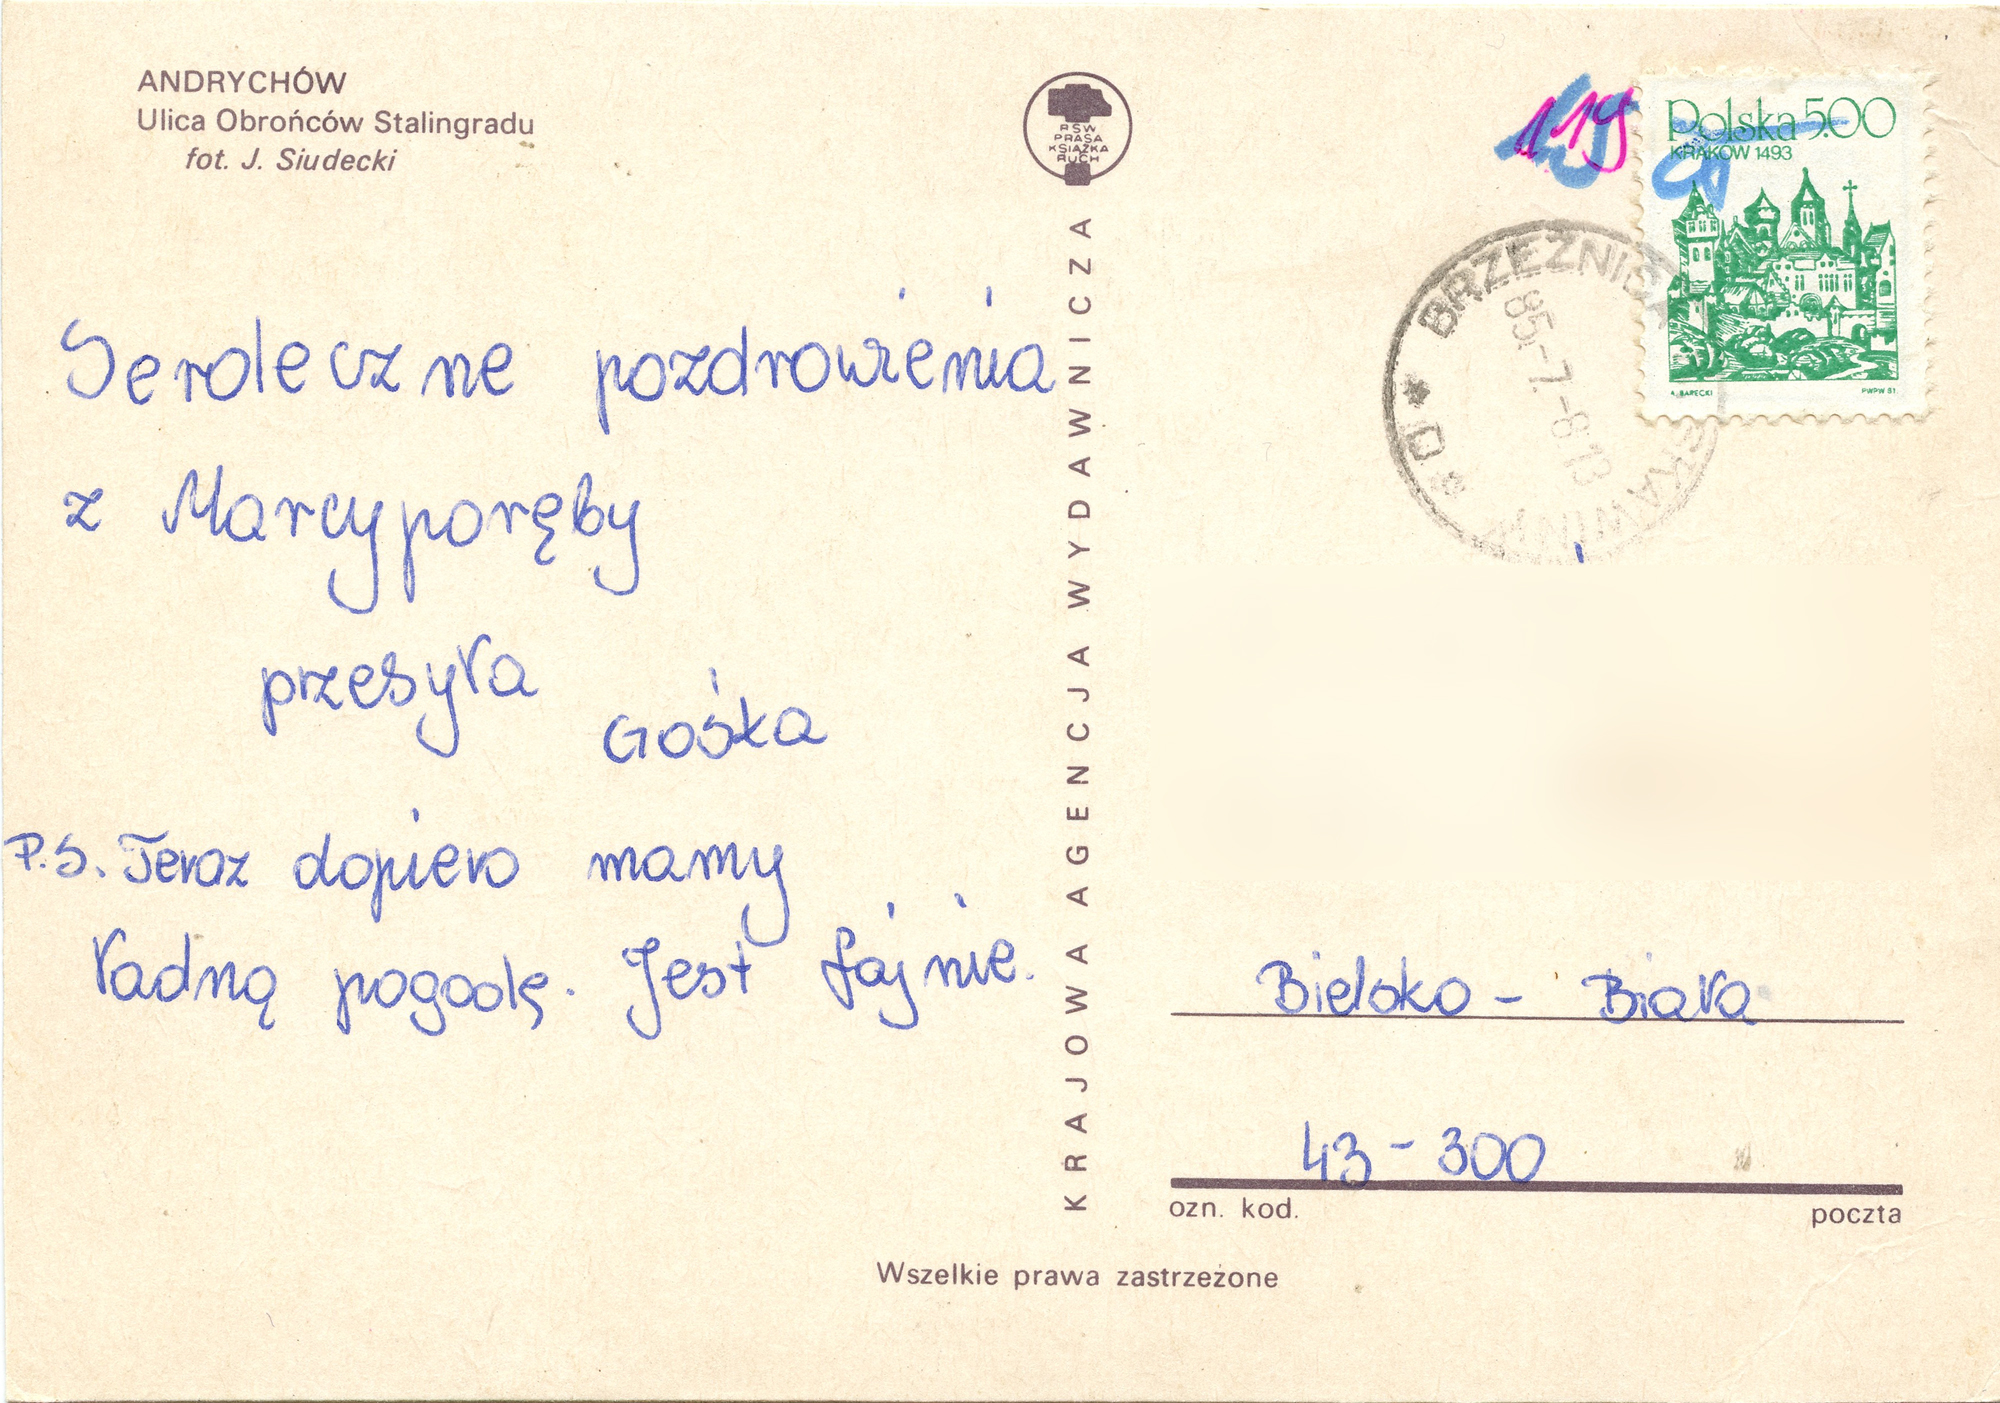 ANDRYCHÓW
Ulica Obrońców Stalingradu
fot. J. Siudecki
RSW
PRASA
KSIĄŻKA
RUCH
KRAJOWA AGENCJA WYDAWNICZA
119
Polska 5.00
KRAKÓW 1493
A. BARECKI PWPW 81
BRZEŹNICA
85.-7.-8.13
Serdeczne pozdrowienia
z Marcyporęby
przesyła
Gośka
P.S. Teraz dopiero mamy
ładną pogodę. Jest fajnie.
Bielsko - Biała
43-300
ozn. kod. poczta
Wszelkie prawa zastrzeżone